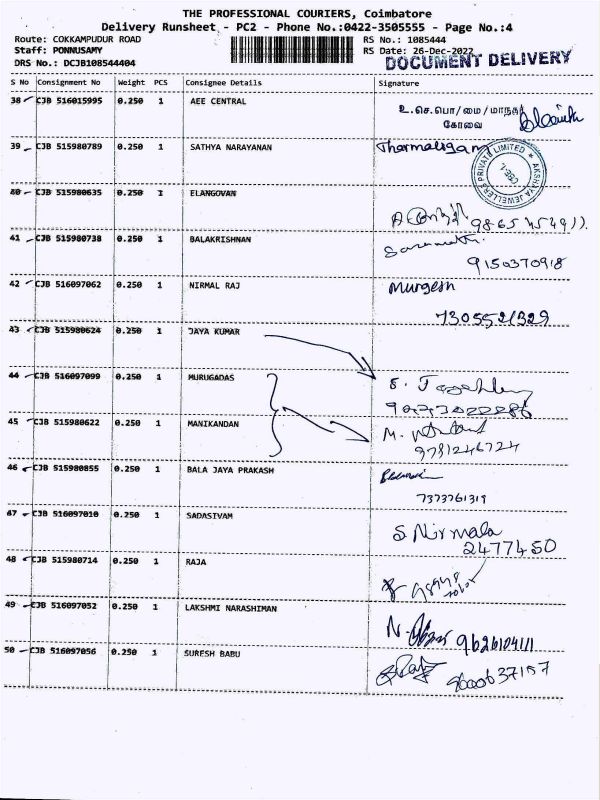 THE PROFESSIONAL COURIERS, Coimbatore
Delivery Runsheet - PC2 - Phone No.:0422-3505555 - Page No.:4
Route: COKKAMPUDUR ROAD
RS No.: 1085444
Staff: PONNUSAMY
RS Date: 26-Dec-2022
DRS No.: DCJB108544404
DOCUMENT DELIVERY
S No Consignment No Weight PCS Consignee Details Signature
38 CJB 516015995 0.250 1 AEE CENTRAL
உ.செ.பொ/மை/மாநகர்
கோவை
39 CJB 515980789 0.250 1 SATHYA NARAYANAN
AKSHAYA JEWELLERS PRIVATE LIMITED
40 CJB 515980635 0.250 1 ELANGOVAN
41 CJB 515980738 0.250 1 BALAKRISHNAN
9150370918
42 CJB 516097062 0.250 1 NIRMAL RAJ Murgesh
7305521329
43 CJB 515980624 0.250 1 JAYA KUMAR
44 CJB 516097099 0.250 1 MURUGADAS
45 CJB 515980622 0.250 1 MANIKANDAN
9781246724
46 CJB 515980855 0.250 1 BALA JAYA PRAKASH
7373761319
47 CJB 516097010 0.250 1 SADASIVAM
S. Nirmala
2477450
48 CJB 515980714 0.250 1 RAJA
49 CJB 516097052 0.250 1 LAKSHMI NARASHIMAN
9626104111
50 CJB 516097056 0.250 1 SURESH BABU